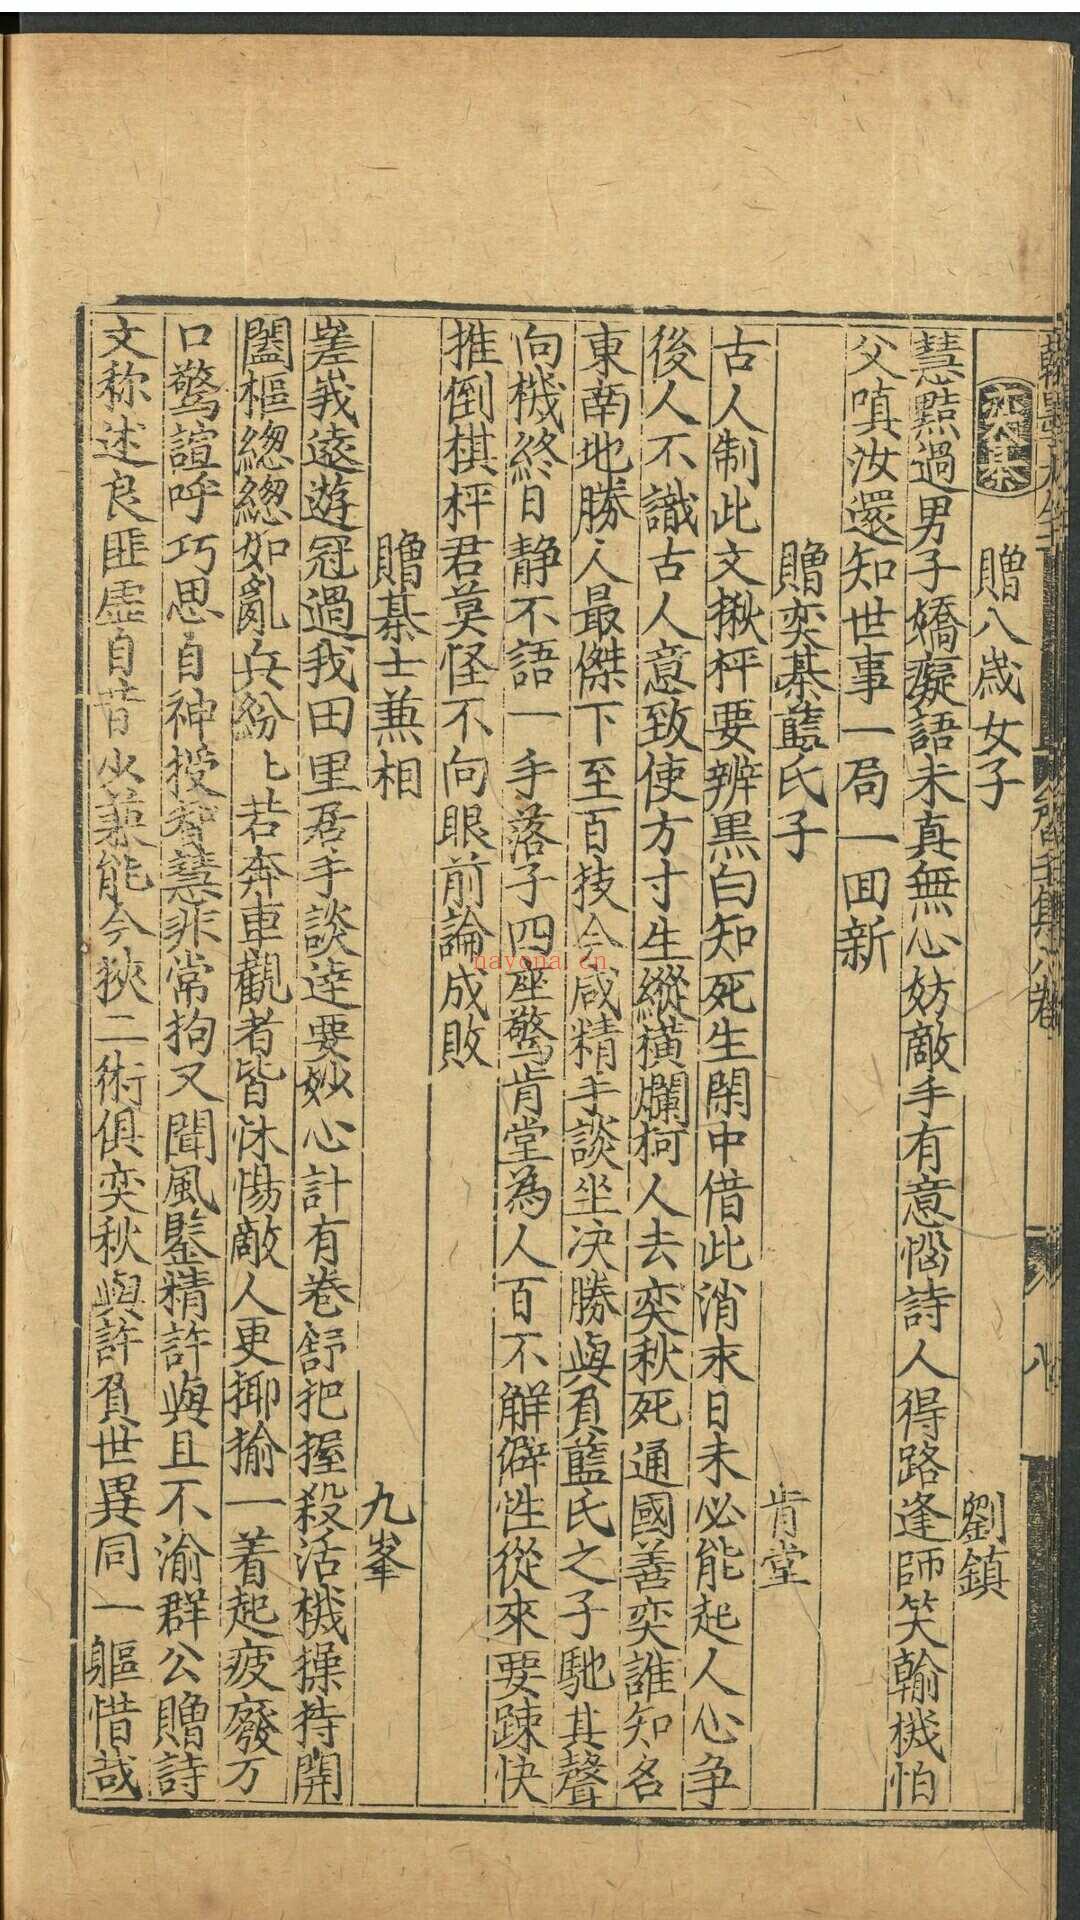 奕棋 贈八歲女子 劉鎮
慧黠過男子嬌癡語未真無心妨敵手有意惱詩人得路逢師笑翰機怕
父嗔汝還知世事一局一回新
贈奕棊藍氏子 肯堂
古人制此文楸枰要辨黑白知死生閑中借此消永日未必能起人心争
後人不識古人意致使方寸生縱橫爛柯人去奕秋死通國善奕誰知名
東南地勝人最傑下至百技今咸精手談坐决勝與負藍氏之子馳其聲
向機終日静不語一手落子四座驚肯堂為人百不解僻性從來要踈快
推倒棋枰君莫怪不向眼前論成敗
贈棊士兼相 九峯
峩遠遊冠過我田里居手談達要妙心計有卷舒把握殺活機操持開
闔樞緫緫如亂兵紛〻若奔車觀者皆怵惕敵人更揶揄一着起疲癈万
口驚諠呼巧思自神授智慧非常拘又聞風鑒精許與且不渝群公贈詩
文称述良匪虛自昔少兼能今挾二術俱奕秋與許負世異同一軀惜哉
nayona.cn